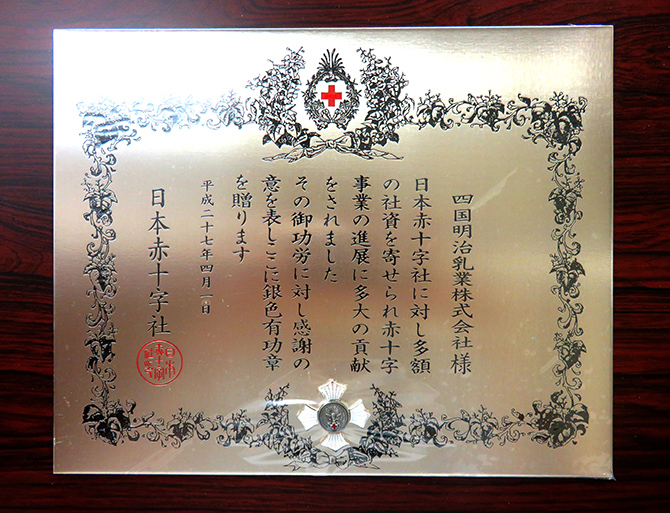 四国明治乳業株式会社 様
日本赤十字社に対し多額
の社資を寄せられ赤十字
事業の進展に多大の貢献
をされました
その御功労に対し感謝の
意を表しここに銀色有功章
を贈ります
平成二十七年四月一日
日本赤十字社